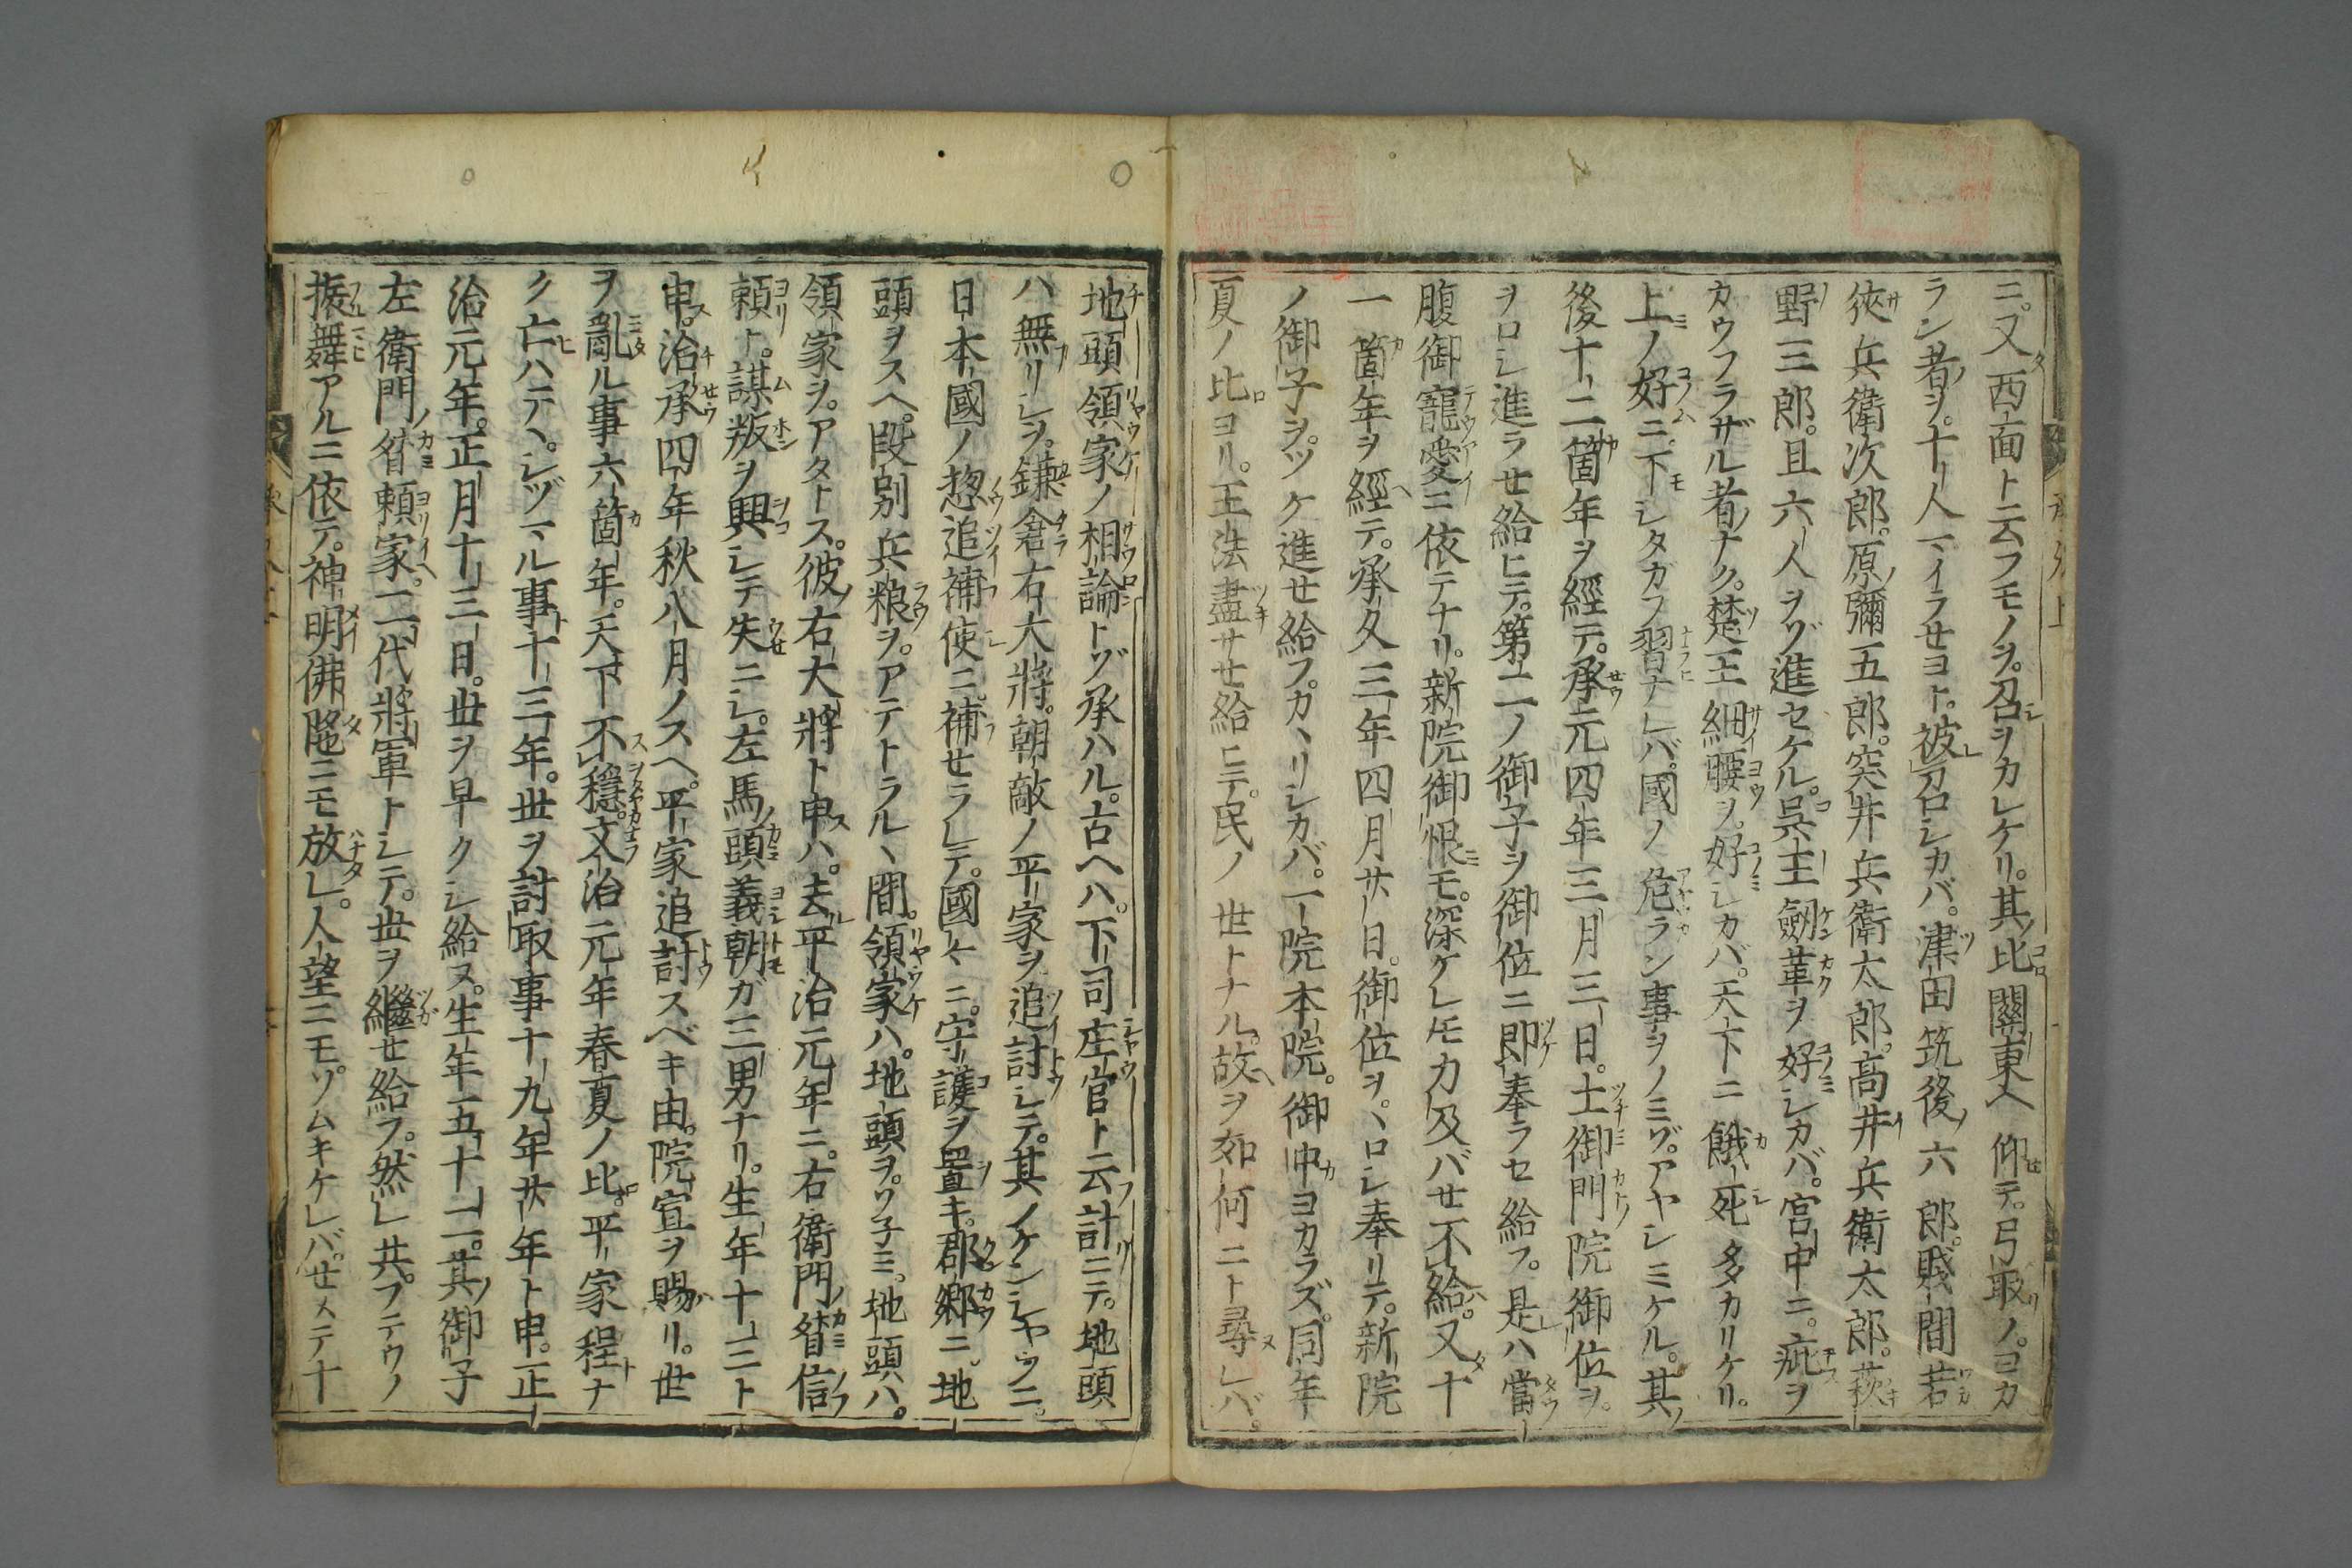 ニ。又西面ト云フモノヲ。召ヲカレケリ。其比關東ヘ仰テ。弓取ノ。ヨカ
ラン者ヲ。十人マイラせヨト。被召シカバ。津田筑後六郎。賤間若
狹兵衛次郎。原彌五郎。突井兵衛太郎。高井兵衛太郎。荻
野三郎。且六人ヲゾ進セケル。呉王劔革ヲ好シカバ。宮中ニ。疵ヲ
カウフラザル者ナク。楚王細腰ヲ。好シカバ。天下ニ餓死多カリケリ。
上ノ好ニ。下シタガフ習ナレバ。國ノ危ラン事ヲノミゾ。アヤシミケル。其
後十二箇年ヲ經テ。承元四年三月三日。土御門院御位ヲ。
ヲロシ進ラせ給ヒテ。第二ノ御子ヲ御位ニ即奉ラセ給フ。是ハ當
腹御寵愛ニ依テナリ。新院御恨モ。深ケレ𪜈力及バせ不給。又十
一箇年ヲ經テ。承久三年四月廿日。御位ヲ。ヽロシ奉リテ。新院
ノ御子ヲ。ツケ進せ給フ。カヽリシカバ。一院本院。御中ヨカラズ。同年
夏ノ比ヨリ。王法盡サせ給ヒテ。民ノ世トナル。故ヲ如何ニト尋レバ。
地頭領家ノ相論トゾ承ハル。古ヘハ。下司庄官ト云計ニテ。地頭
ハ無リシヲ。鎌倉右大將。朝敵ノ平家ヲ追討シテ。其ノケンシヤウニ。
日本國ノ惣追補使ニ。補せラレテ。國々ニ。守護ヲ置キ。郡郷ニ。地
頭ヲスヘ。段別兵粮ヲ。アテトラルヽ間。領家ハ。地頭ヲ。ソ子ミ。地頭ハ。
領家ヲ。アタトス。彼右大將ト申ハ。去平治元年ニ。右衛門督信
頼ト。謀叛ヲ興シテ失ニシ。左馬頭義朝ガ三男ナリ。生年十三ト
申。治承四年秋八月ノスヘ。平家追討スベキ由。院宣ヲ賜リ。世
ヲ亂ル事六箇年。天下不穩。文治元年春夏ノ比。平家程ナ
ク亡ハテヽ。シヅマル事十三年。世ヲ討取事十九年廿年ト申。正
治元年。正月十三日。世ヲ早クシ給ヌ。生年五十二。其御子
左衛門督頼家。二代將軍トシテ。世ヲ繼せ給フ。然レ共。フテウノ
振舞アルニ依テ。神明佛陀ニモ放レ。人望ニモ。ソムキケレバ。せメテ十